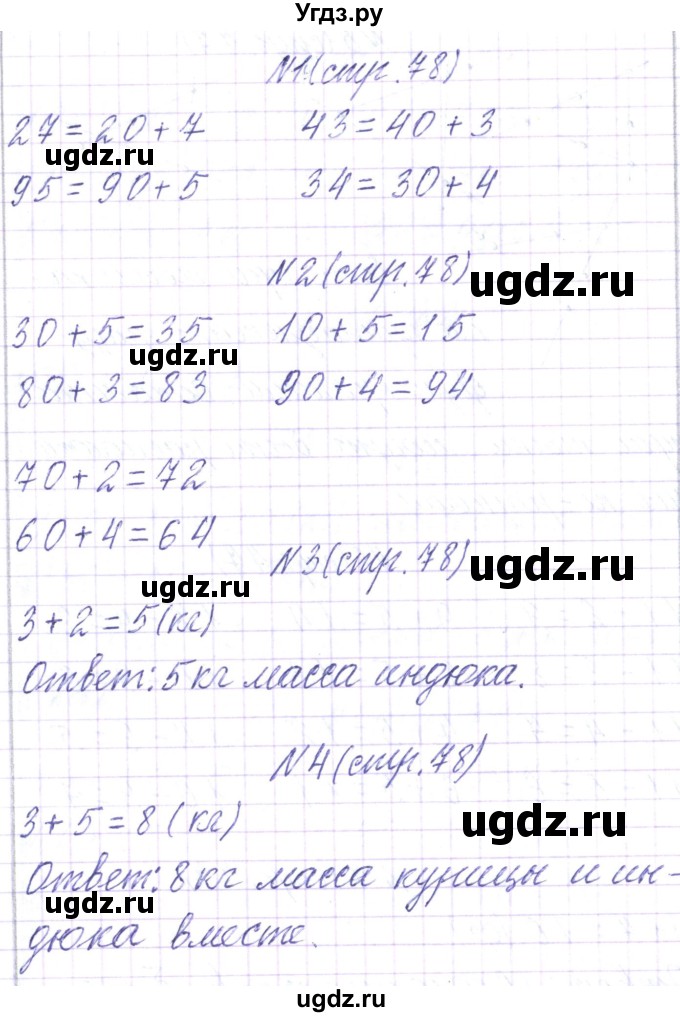 Угдз.ру
N1(стр. 78)
27 = 20 + 7 43 = 40 + 3
ugdz.ru
95 = 90 + 5 34 = 30 + 4
N2(стр. 78)
ugdz.ru
30 + 5 = 35 10 + 5 = 15
ugdz.ru
80 + 3 = 83 90 + 4 = 94
70 + 2 = 72
60 + 4 = 64
N3(стр. 78)
ugdz.ru
ugdz.ru
3 + 2 = 5 (кг)
Ответ: 5 кг масса индюка.
N4(стр. 78)
3 + 5 = 8 (кг)
ugdz.ru
Ответ: 8 кг масса курицы и ин-
ugdz.ru
дюка вместе.
ugdz.ru